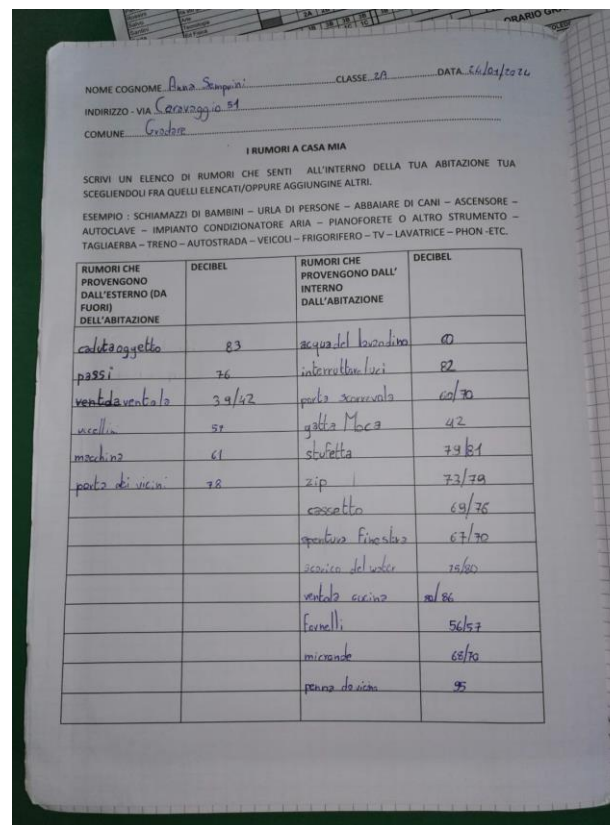 ORARIO
NOME COGNOME Anna Semprini CLASSE 2A DATA 24/01/2024
INDIRIZZO - VIA Caravaggio 51
COMUNE Gradara
I RUMORI A CASA MIA
SCRIVI UN ELENCO DI RUMORI CHE SENTI ALL'INTERNO DELLA TUA ABITAZIONE TUA
SCEGLIENDOLI FRA QUELLI ELENCATI/OPPURE AGGIUNGINE ALTRI.
ESEMPIO : SCHIAMAZZI DI BAMBINI – URLA DI PERSONE – ABBAIARE DI CANI – ASCENSORE –
AUTOCLAVE – IMPIANTO CONDIZIONATORE ARIA – PIANOFORETE O ALTRO STRUMENTO –
TAGLIAERBA – TRENO – AUTOSTRADA – VEICOLI – FRIGORIFERO – TV – LAVATRICE – PHON -ETC.
RUMORI CHE PROVENGONO DALL'ESTERNO (DA FUORI) DELL'ABITAZIONE DECIBEL RUMORI CHE PROVENGONO DALL' INTERNO DALL'ABITAZIONE DECIBEL
caduta oggetto 83 acqua del lavandino
passi 76 luci 82
ventola 39/42 porta scorrevole 60/70
uccellini 57 gatta Moca 42
macchina 61 stufetta 79/81
porta dei vicini 78 zip 73/79
cassetto 69/76
apertura finestra 67/70
scarico del water 75/80
ventola cucina /86
fornelli 56/57
microonde 68/70
penna da vicino 95